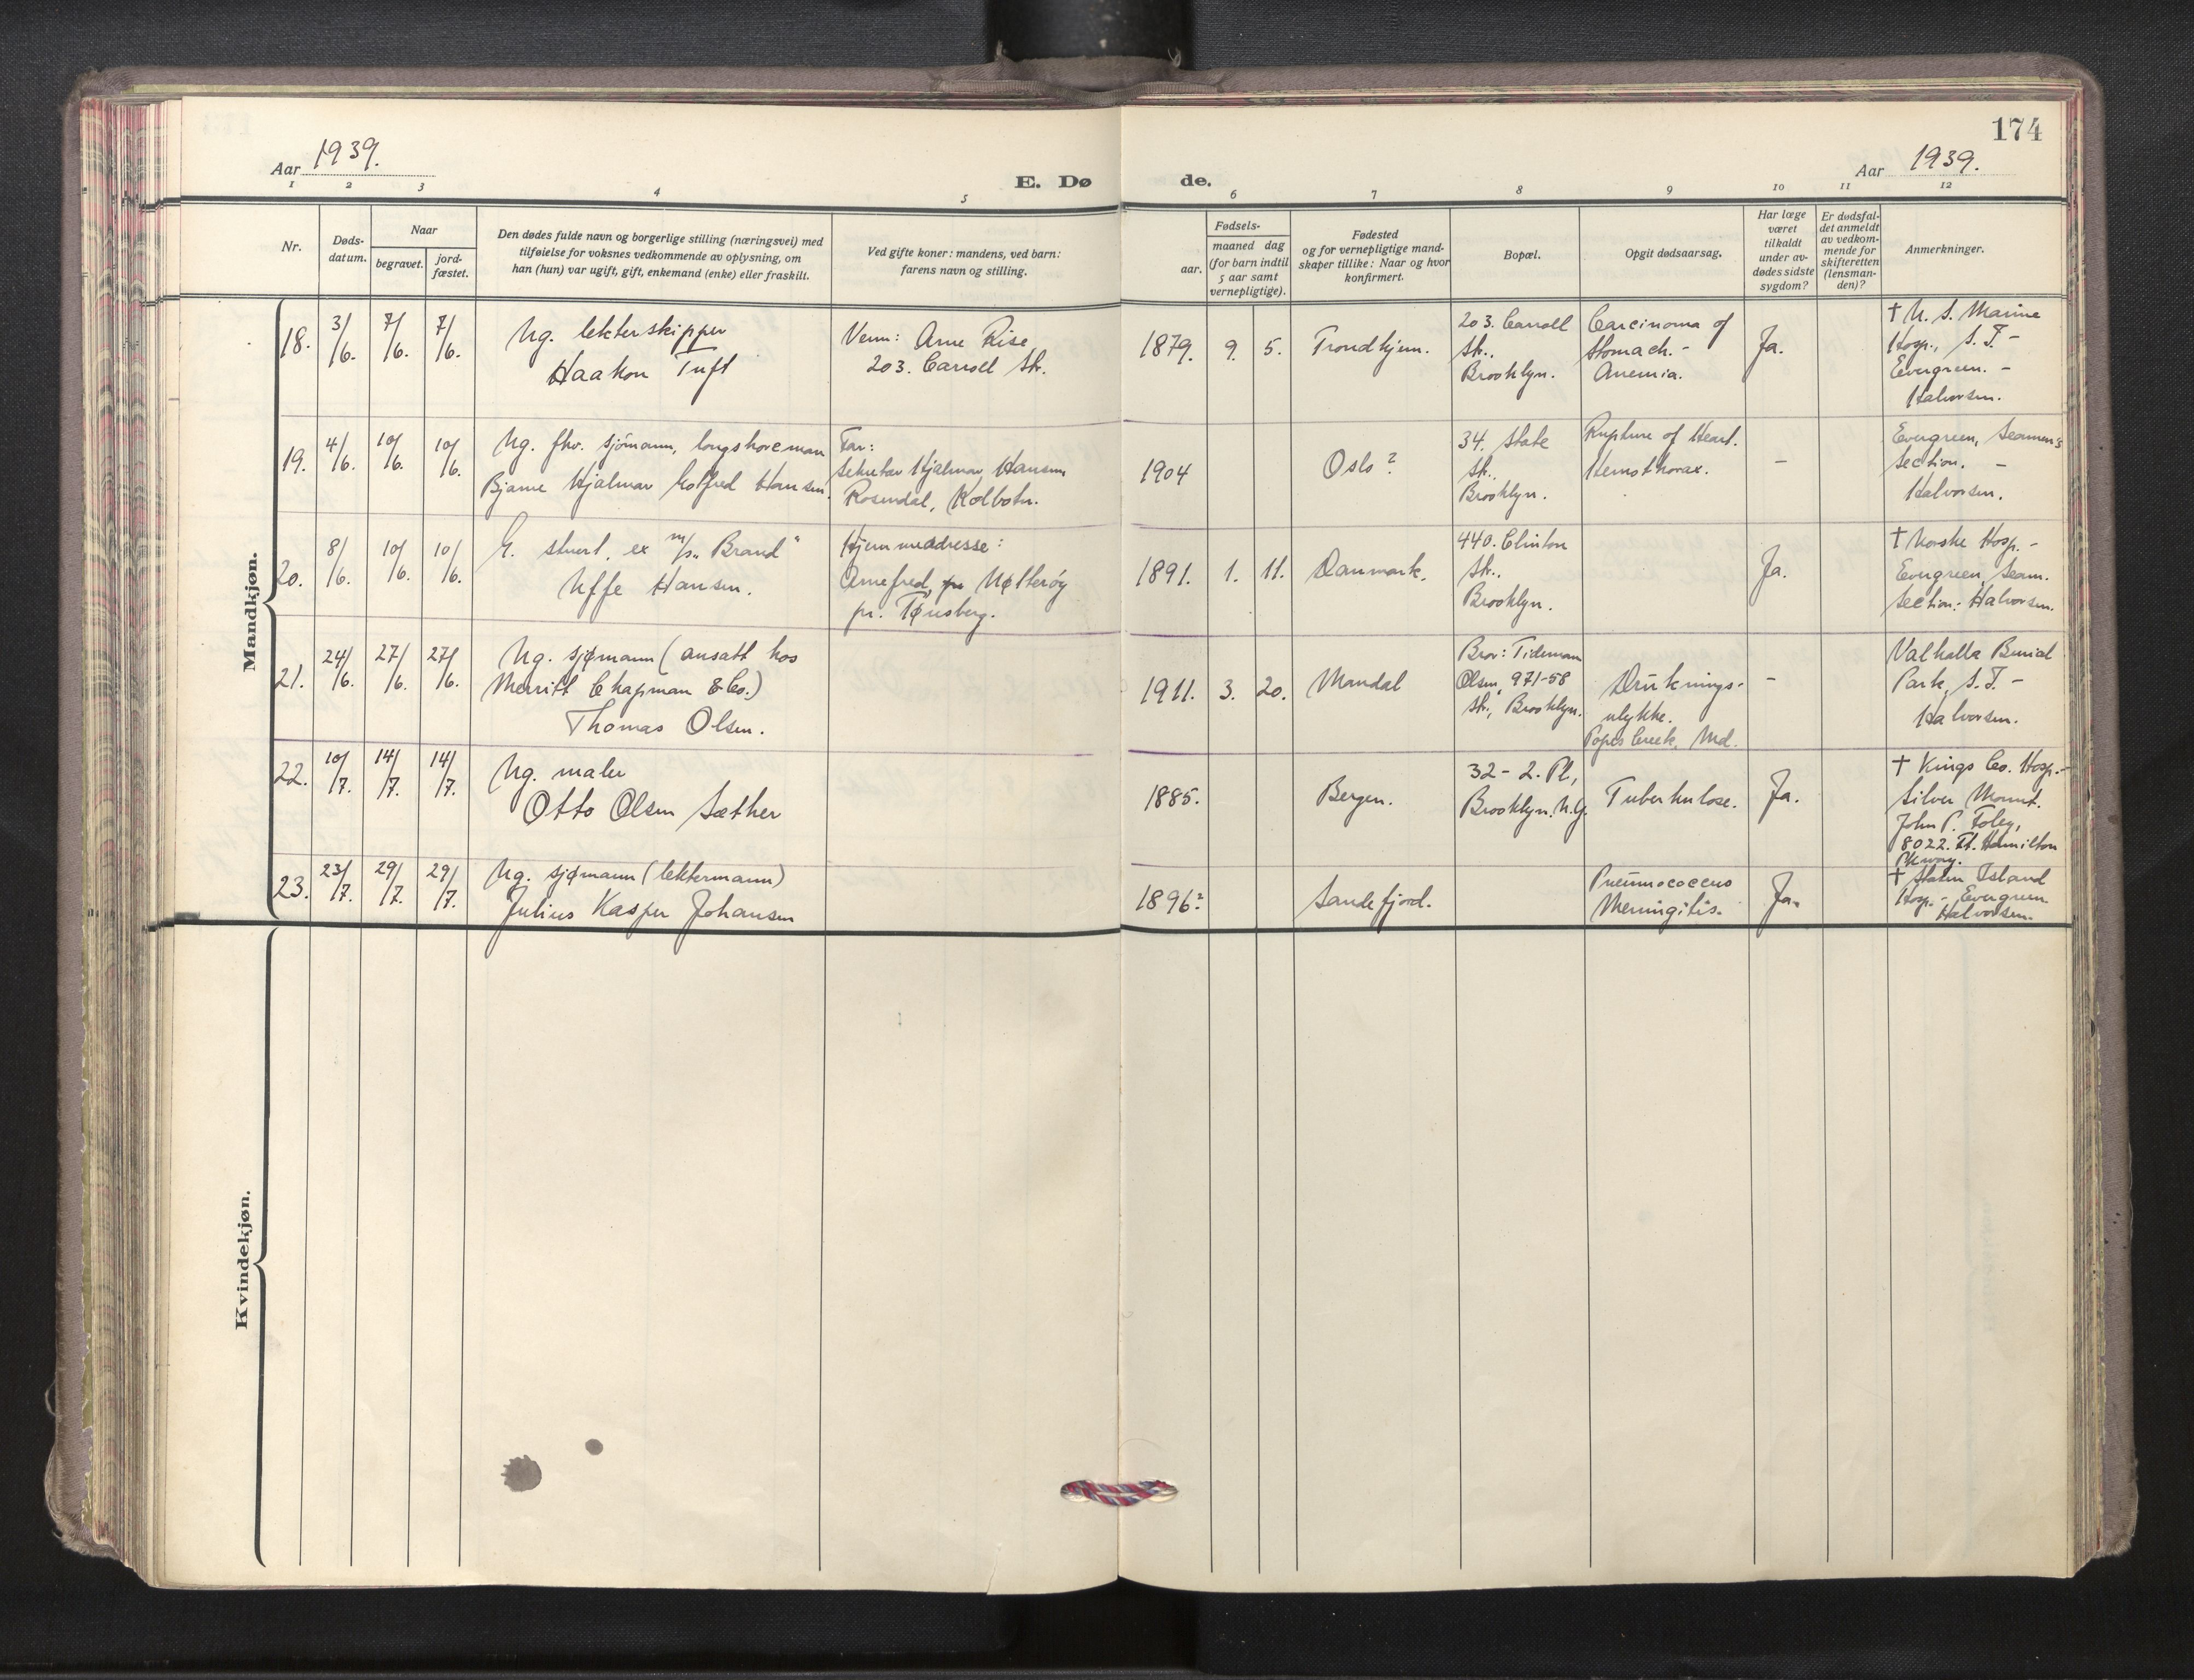 174
Aar 1939.
E. Dø
de.
Aar 1939.
1 2 3 4 5 6 7 8 9 10 11 12
Nr.
Døds-
datum.
Naar
begravet.
jord-
fæstet.
Den dødes fulde navn og borgerlige stilling (næringsvei) med
tilføielse for voksnes vedkommende av oplysning, om
han (hun) var ugift, gift, enkemand (enke) eller fraskilt.
Ved gifte koner: mandens, ved barn:
farens navn og stilling.
Fødsels-
aar.
maaned dag
(for barn indtil
5 aar samt
vernepligtige).
Fødested
og for vernepligtige mand-
skaper tillike: Naar og hvor
konfirmert.
Bopæl.
Opgit dødsaarsag.
Har læge
været
tilkaldt
under av-
dødes sidste
sygdom?
Er dødsfal-
det anmeldt
av vedkom-
mende for
skifteretten
(lensman-
den)?
Anmerkninger.
Mandkjøn.
18.
3/6.
7/6.
7/6.
Ug. lekterskipper
Haakon Tuft
Venn: Arne Rise
203. Carroll Str.
1879. 9. 5.
Trondhjem.
203. Carroll
Str.,
Brooklyn.
Carcinoma of
Stomach. -
Anemia.
Ja.
† U. S. Marine
Hosp., S. I. -
Evergreen. -
Halvorsen.
19.
4/6.
10/6.
10/6.
Ug. fhv. sjömann, longshoreman
Bjarne Hjalmar Golfred Hansen.
Far:
Sekretær Hjalmar Hansen
Rosendal, Kolbotn.
1904
Oslo?
34. State
Str.,
Brooklyn.
Rupture of Heart.
Hemothorax.
-
Evergreen, Seamen's
Section. -
Halvorsen.
20.
8/6.
10/6.
10/6.
G. stuert, ex m/s "Brand"
Uffe Hansen.
Hjemmeadresse:
Arnefred, Nøtterøy
pr. Tønsberg.
1891. 1. 11.
Danmark.
440. Clinton
Str.,
Brooklyn.
Ja.
† Norske Hosp. -
Evergreen, Seam.
Section: Halvorsen.
21.
24/6.
27/6.
27/6.
Ug. sjømann (ansatt hos
Merritt Chapman & Co.)
Thomas Olsen.
1911. 3. 20.
Mandal
Bror: Tidemann
Olsen, 971-58
Str., Brooklyn.
Drüknings-
ulykke.
Popes Creek, Md.
-
Valhalla Burial
Park, S. I. -
Halvorsen.
22.
10/7.
14/7.
14/7.
Ug. maler
Otto Olsen Sæther
1885.
Bergen.
32 - 2. Pl.,
Brooklyn. N.Y.
Tuberkulose.
Ja.
† Kings Co. Hosp. -
Silver Mount.
John P. Foley,
8022. Ft. Hamilton
Pkway.
23.
23/7.
29/7.
29/7.
Ug. sjømann (lektermann)
Julius Kasper Johansen
1896?
Sandefjord.
Pneumococcus
Meningitis.
Ja.
† Staten Island
Hosp. - Evergreen
Halvorsen.
Kvindekjøn.